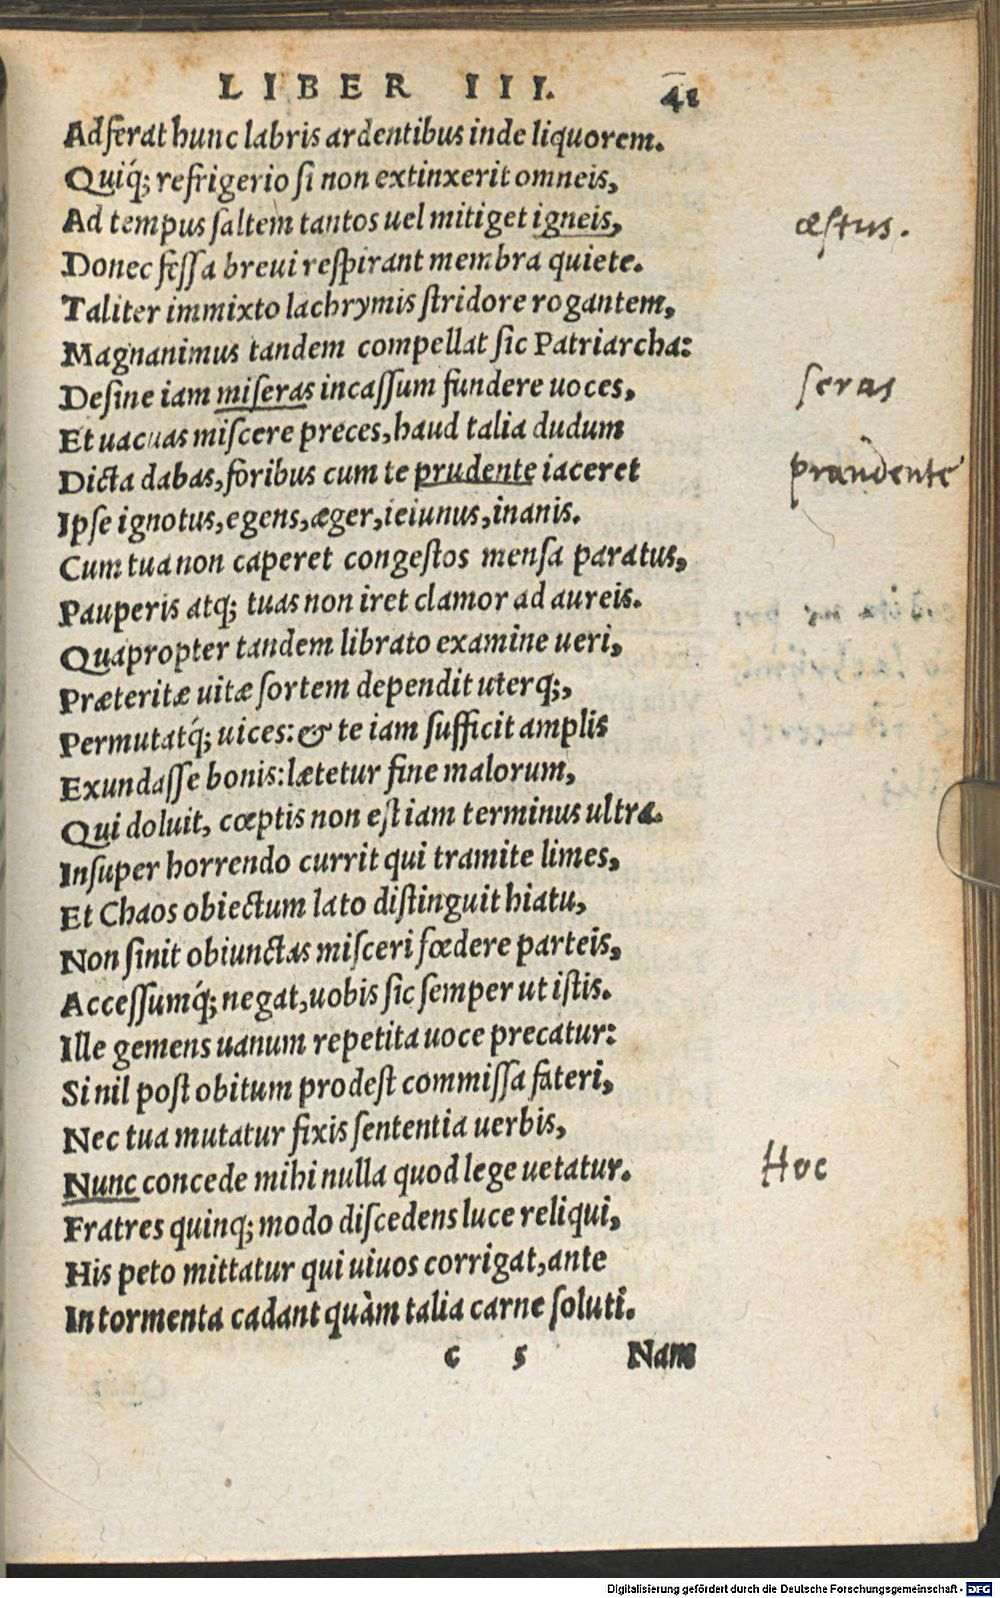 LIBER III. 41
Adferat hunc labris ardentibus inde liquorem.
Quiq́; refrigerio si non extinxerit omneis,
Ad tempus saltem tantos uel mitiget igneis, æstus.
Donec fessa breui respirant membra quiete.
Taliter immixto lachrymis stridore rogantem,
Magnanimus tandem compellat sic Patriarcha:
Desine iam miseras incassum fundere uoces, seras
Et uacuas miscere preces, haud talia dudum
Dicta dabas, foribus cum te prudente iaceret prandente
Ipse ignotus, egens, æger, ieiunus, inanis.
Cum tua non caperet congestos mensa paratus,
Pauperis atq; tuas non iret clamor ad aureis.
Quapropter tandem librato examine ueri,
Præteritæ uitæ sortem dependit uterq;,
Permutatq́; uices: & te iam sufficit amplis
Exundasse bonis: lætetur fine malorum,
Qui doluit, cœptis non est iam terminus ultra.
Insuper horrendo currit qui tramite limes,
Et Chaos obiectum lato distinguit hiatu,
Non sinit obiunctas misceri fœdere parteis,
Accessumq́; negat, uobis sic semper ut istis.
Ille gemens uanum repetita uoce precatur:
Si nil post obitum prodest commissa fateri,
Nec tua mutatur fixis sententia uerbis,
Nunc concede mihi nulla quod lege uetatur. Hoc
Fratres quinq; modo discedens luce reliqui,
His peto mittatur qui uiuos corrigat, ante
In tormenta cadant quàm talia carne soluti.
c 5 Nam
Digitalisierung gefördert durch die Deutsche Forschungsgemeinschaft - DFG